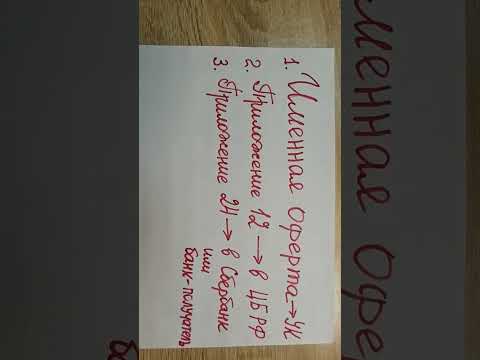 1. Именная оферта → УК
2. Приложение 12 → в ЦБ РФ
3. Приложение 24 → в Сбербанк
или
банк-получатель